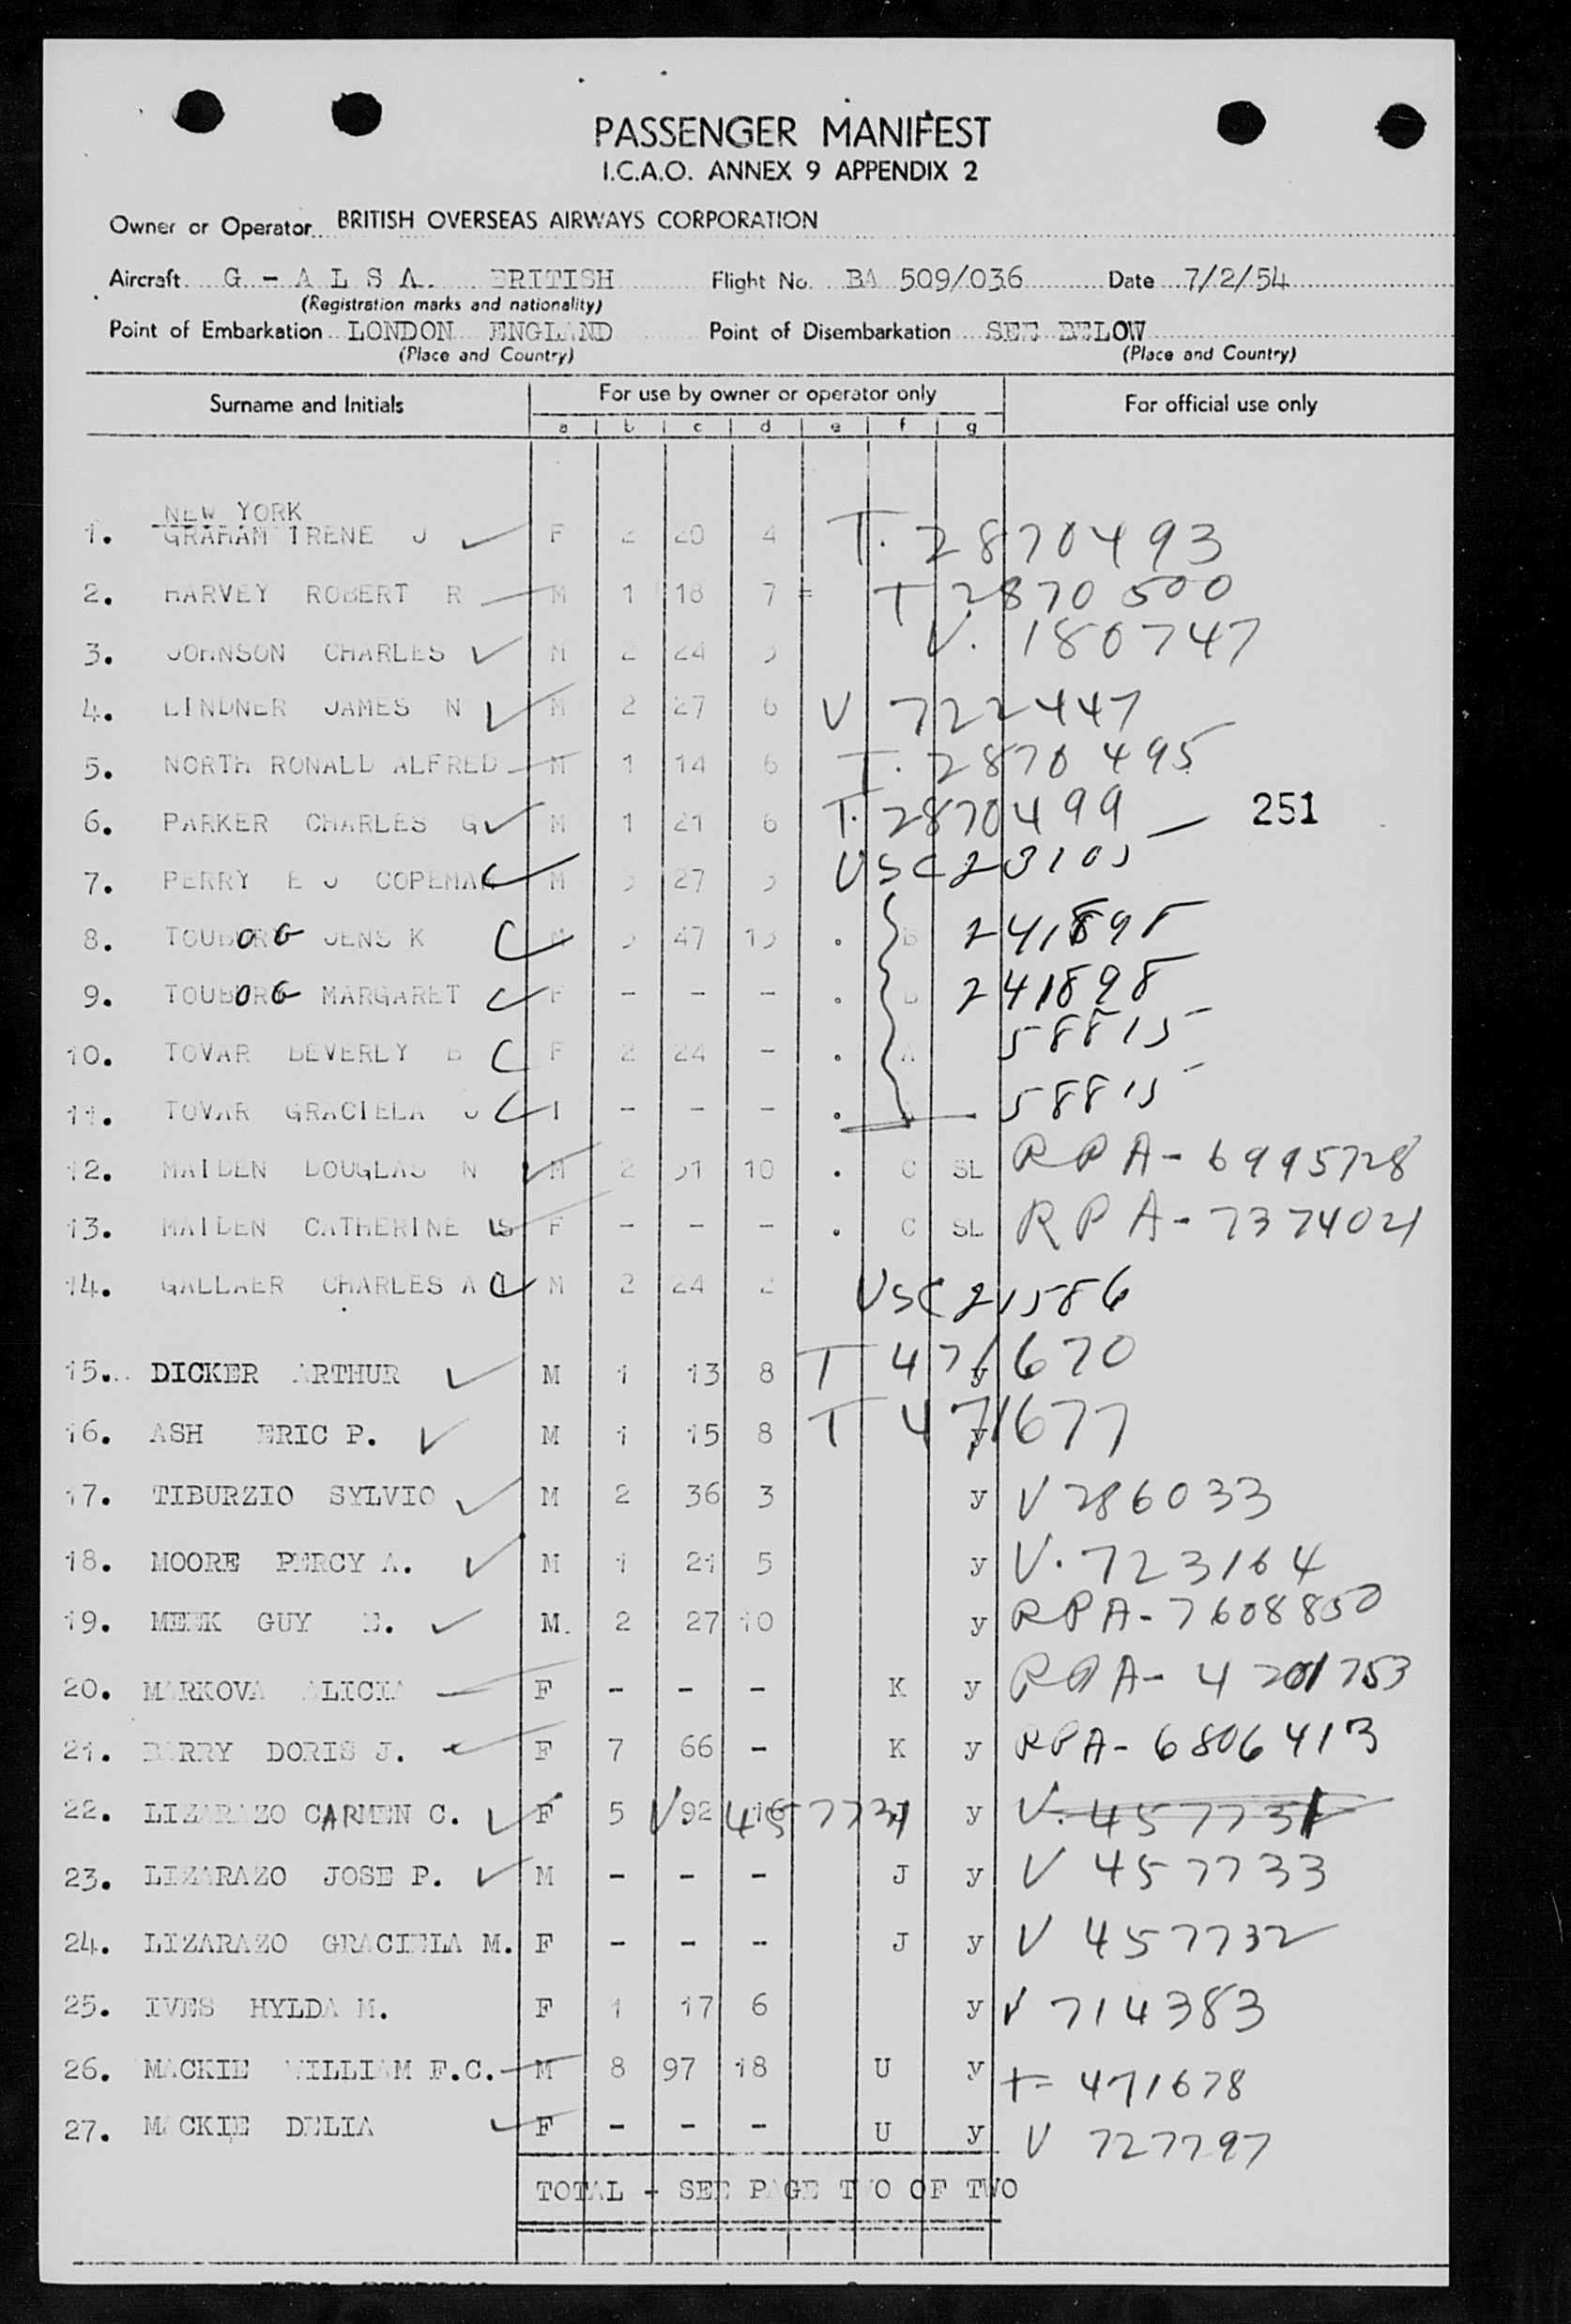 PASSENGER MANIFEST
I.C.A.O. ANNEX 9 APPENDIX 2
Owner or Operator BRITISH OVERSEAS AIRWAYS CORPORATION
Aircraft G - A L S A. BRITISH Flight No. BA 509/036 Date 7/2/54
(Registration marks and nationality)
Point of Embarkation LONDON ENGLAND Point of Disembarkation SEE BELOW
(Place and Country) (Place and Country)
Surname and Initials For use by owner or operator only For official use only
a b c d e f g
NEW YORK
1. GRAHAM IRENE J F 2 20 4 T. 2870493
2. HARVEY ROBERT R M 1 18 7 T 2870500
3. JOHNSON CHARLES M 2 24 V. 180747
4. LINDNER JAMES N M 2 27 6 V 722447
5. NORTH RONALD ALFRED M 1 14 6 T. 2870495
6. PARKER CHARLES G M 1 21 6 T. 2870499 — 251
7. PERRY E J COPEMAN M 27 USC 23105
8. TOUBORG JENS K M 47 B 241898
9. TOUBORG MARGARET F - - - . B 241898
10. TOVAR BEVERLY B F 2 24 - . A 58815
11. TOVAR GRACIELA J - - - . 58815
12. MAIDEN DOUGLAS N M 2 51 10 . C SL RPA-6995728
13. MAIDEN CATHERINE S F - - - . C SL RPA-7374021
14. GALLAER CHARLES A M 2 24 2 USC 21586
15. DICKER ARTHUR M 1 13 8 y T 471670
16. ASH ERIC P. M 1 15 8 y T 471677
17. TIBURZIO SYLVIO M 2 36 3 y V 286033
18. MOORE PERCY A. M 1 21 5 y V. 723164
19. MEEK GUY E. M. 2 27 10 y RPA-7608850
20. MARKOVA ALICIA F - - - K y RPA-4201753
21. BARRY DORIS J. F 7 66 - K y RPA-6806413
22. LIZARAZO CARMEN C. F 5 92 16 J y V. 457731 V. 457731
23. LIZARAZO JOSE P. M - - - J y V 457733
24. LIZARAZO GRACIELA M. F - - - J y V 457732
25. IVES HYLDA M. F 1 17 6 y V 714383
26. MACKIE WILLIAM F.C. M 8 97 18 U y T= 471678
27. MACKIE DELIA F - - - U y V 727797
TOTAL - SEE PAGE TWO OF TWO